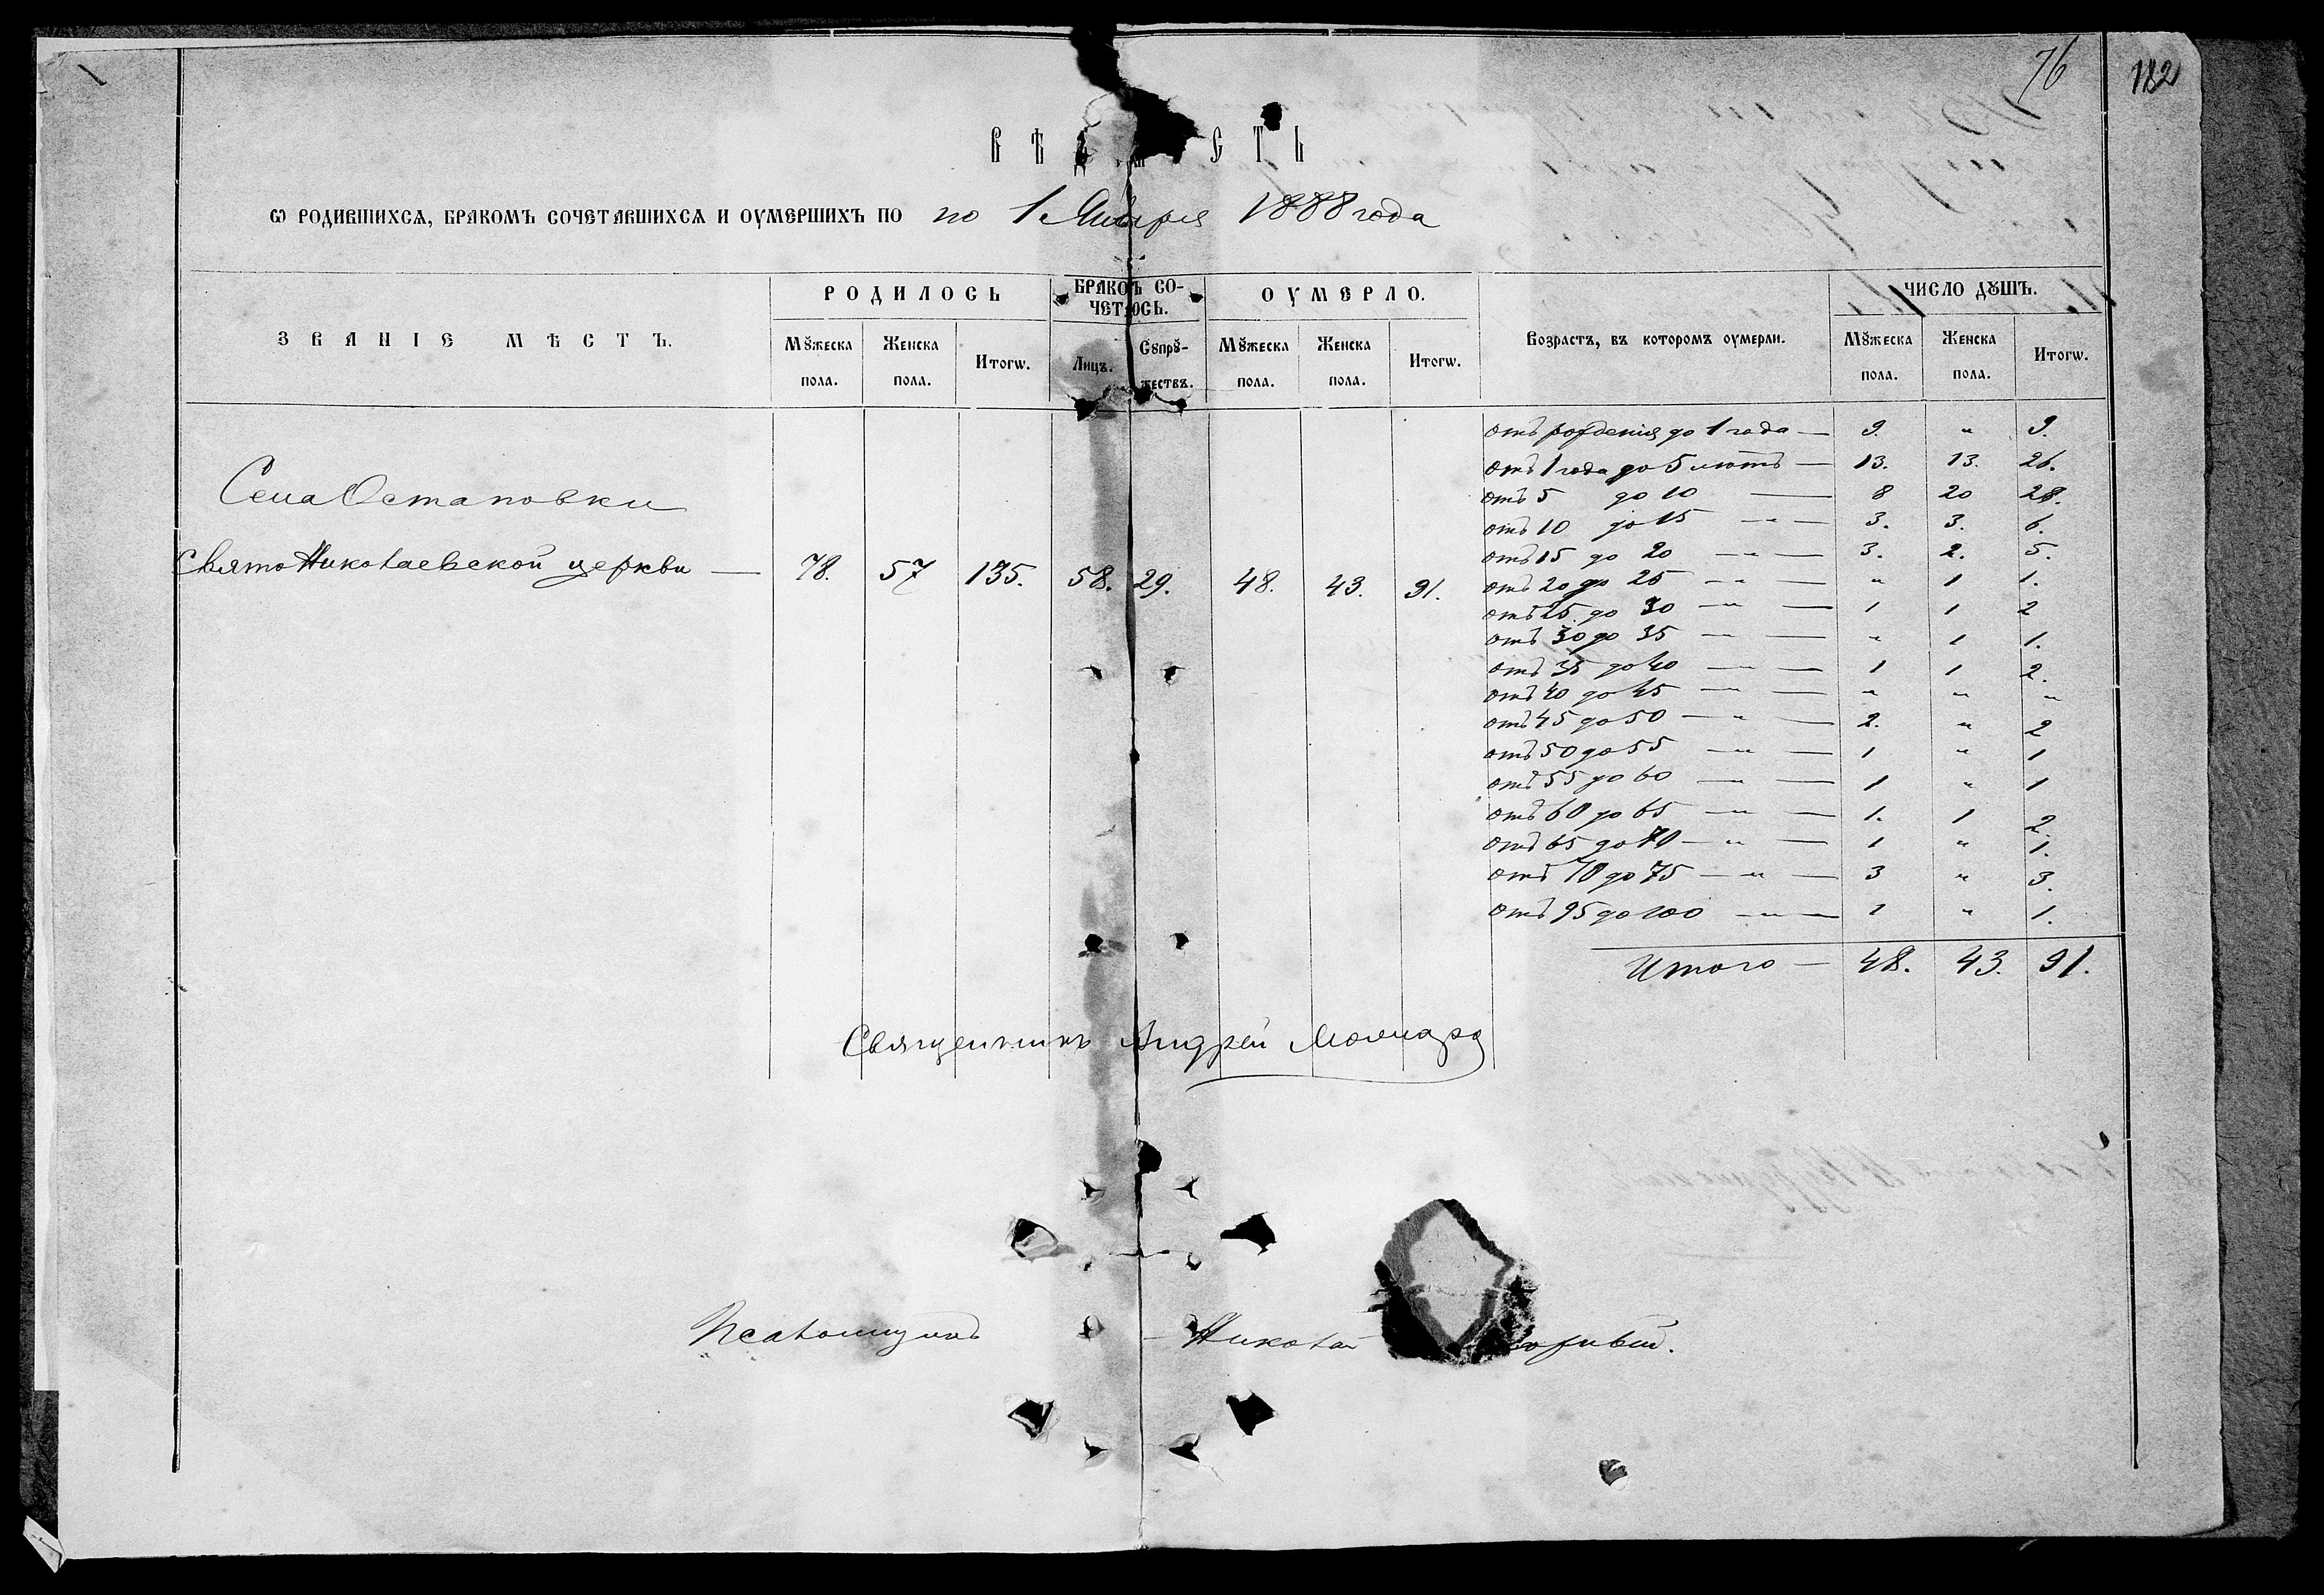 76
182
ВѢ СТЬ
Ѡ РОДИВШИХСѦ, БРАКОМЪ СОЧЕТАВШИХСѦ И ОУМЕРШИХЪ ПО по 1 Января 1888 года
ЗВАНІЕ МѢСТЪ. РОДИЛОСЬ БРАКОМЪ СО- ОУМЕРЛО. Возрастъ, въ которомъ оумерли. ЧИСЛО ДꙊШЪ.
ЧЕТАЛОСЬ.
Мꙋжеска Женска Итогѡ. Лицъ. Сꙋпрꙋ- Мꙋжеска Женска Итогѡ. Мꙋжеска Женска Итогѡ.
пола. пола. жествъ. пола. пола. пола. пола.
отъ рожденія до 1 года — 9. " 9.
отъ 1 года до 5 лѣтъ — 13. 13. 26.
Села Остаповки
отъ 5 до 10 — 8 20 28.
отъ 10 до 15 — " — 3. 3. 6.
отъ 15 до 20 — " — 3. 2. 5.
Свято Николаевской церкви — 78. 57 135. 58. 29. 48. 43. 91.
отъ 20 до 25 — " — " 1 1.
отъ 25 до 30 — " — 1 1 2
отъ 30 до 35 — " — " 1 1.
отъ 35 до 40 — " — 1 1 2.
отъ 40 до 45 — " — " " "
отъ 45 до 50 — " — 2. " 2
отъ 50 до 55 — " — 1 " 1
отъ 55 до 60 — " — 1 " 1
отъ 60 до 65 — " — 1. 1 2.
отъ 65 до 70 — " — 1 " 1.
отъ 70 до 75 — " — 3 " 3.
отъ 95 до 100 — " — 1 " 1.
Итого — 48. 43. 91.
Священникъ Андрей
Псаломщикъ — Николай